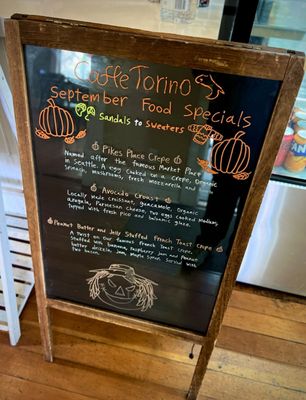 Caffe Torino
September Food Specials
Sandals to Sweaters
Pikes Place Crepe
Named after the famous Market Place
in Seattle. A egg cooked to a crepe, Organic
Spinach, mushrooms, fresh mozzarella and
Avocado Croast
Locally made croissant, guacamole, Organic
arugala, Parmesan cheese, two eggs cooked medium,
Topped with fresh pico and balsamic glaze.
Peanut Butter and Jelly Stuffed French Toast Crepe
A twist on our famous French Toast Crepe.
Stuffed with banana, raspberry jam and Peanut
butter drizzle, Jam, Maple Syrup. Served with
two bacon.